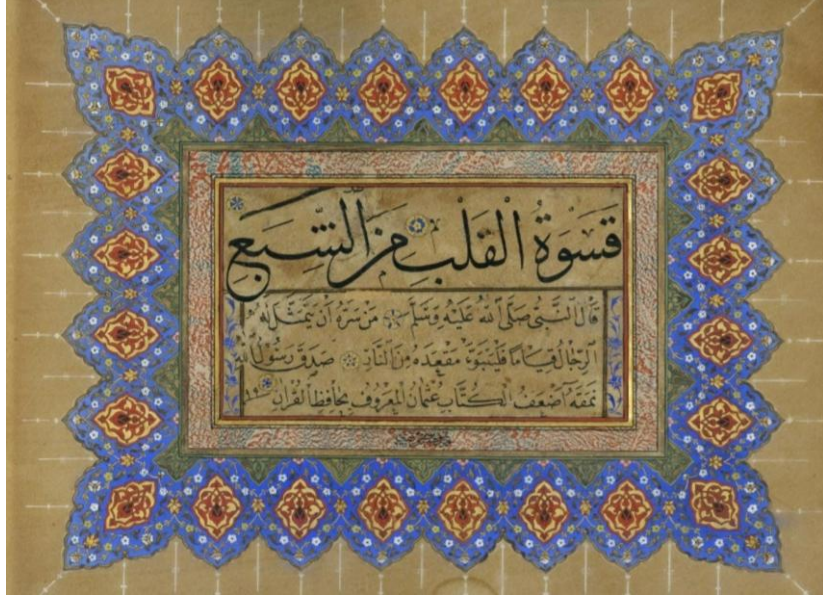 قَسْوَةُ الْقَلْبِ مِنَ الشِّبَعِ
قَالَ النَّبِيُّ صَلَّى اللهُ عَلَيْهِ وَسَلَّمَ مَنْ سَرَّهُ اَنْ يَتَمَثَّلَ لَهُ
الرِّجَالُ قِيَامًا فَلْيَتَبَوَّءْ مَقْعَدَهُ مِنَ النَّارِ صَدَقَ رَسُولُ اللهِ
نَمَقَهُ اَضْعَفُ الْكُتَّابِ عُثْمَانُ الْمَعْرُوفُ بِحَافِظِ الْقُرْاٰنِ